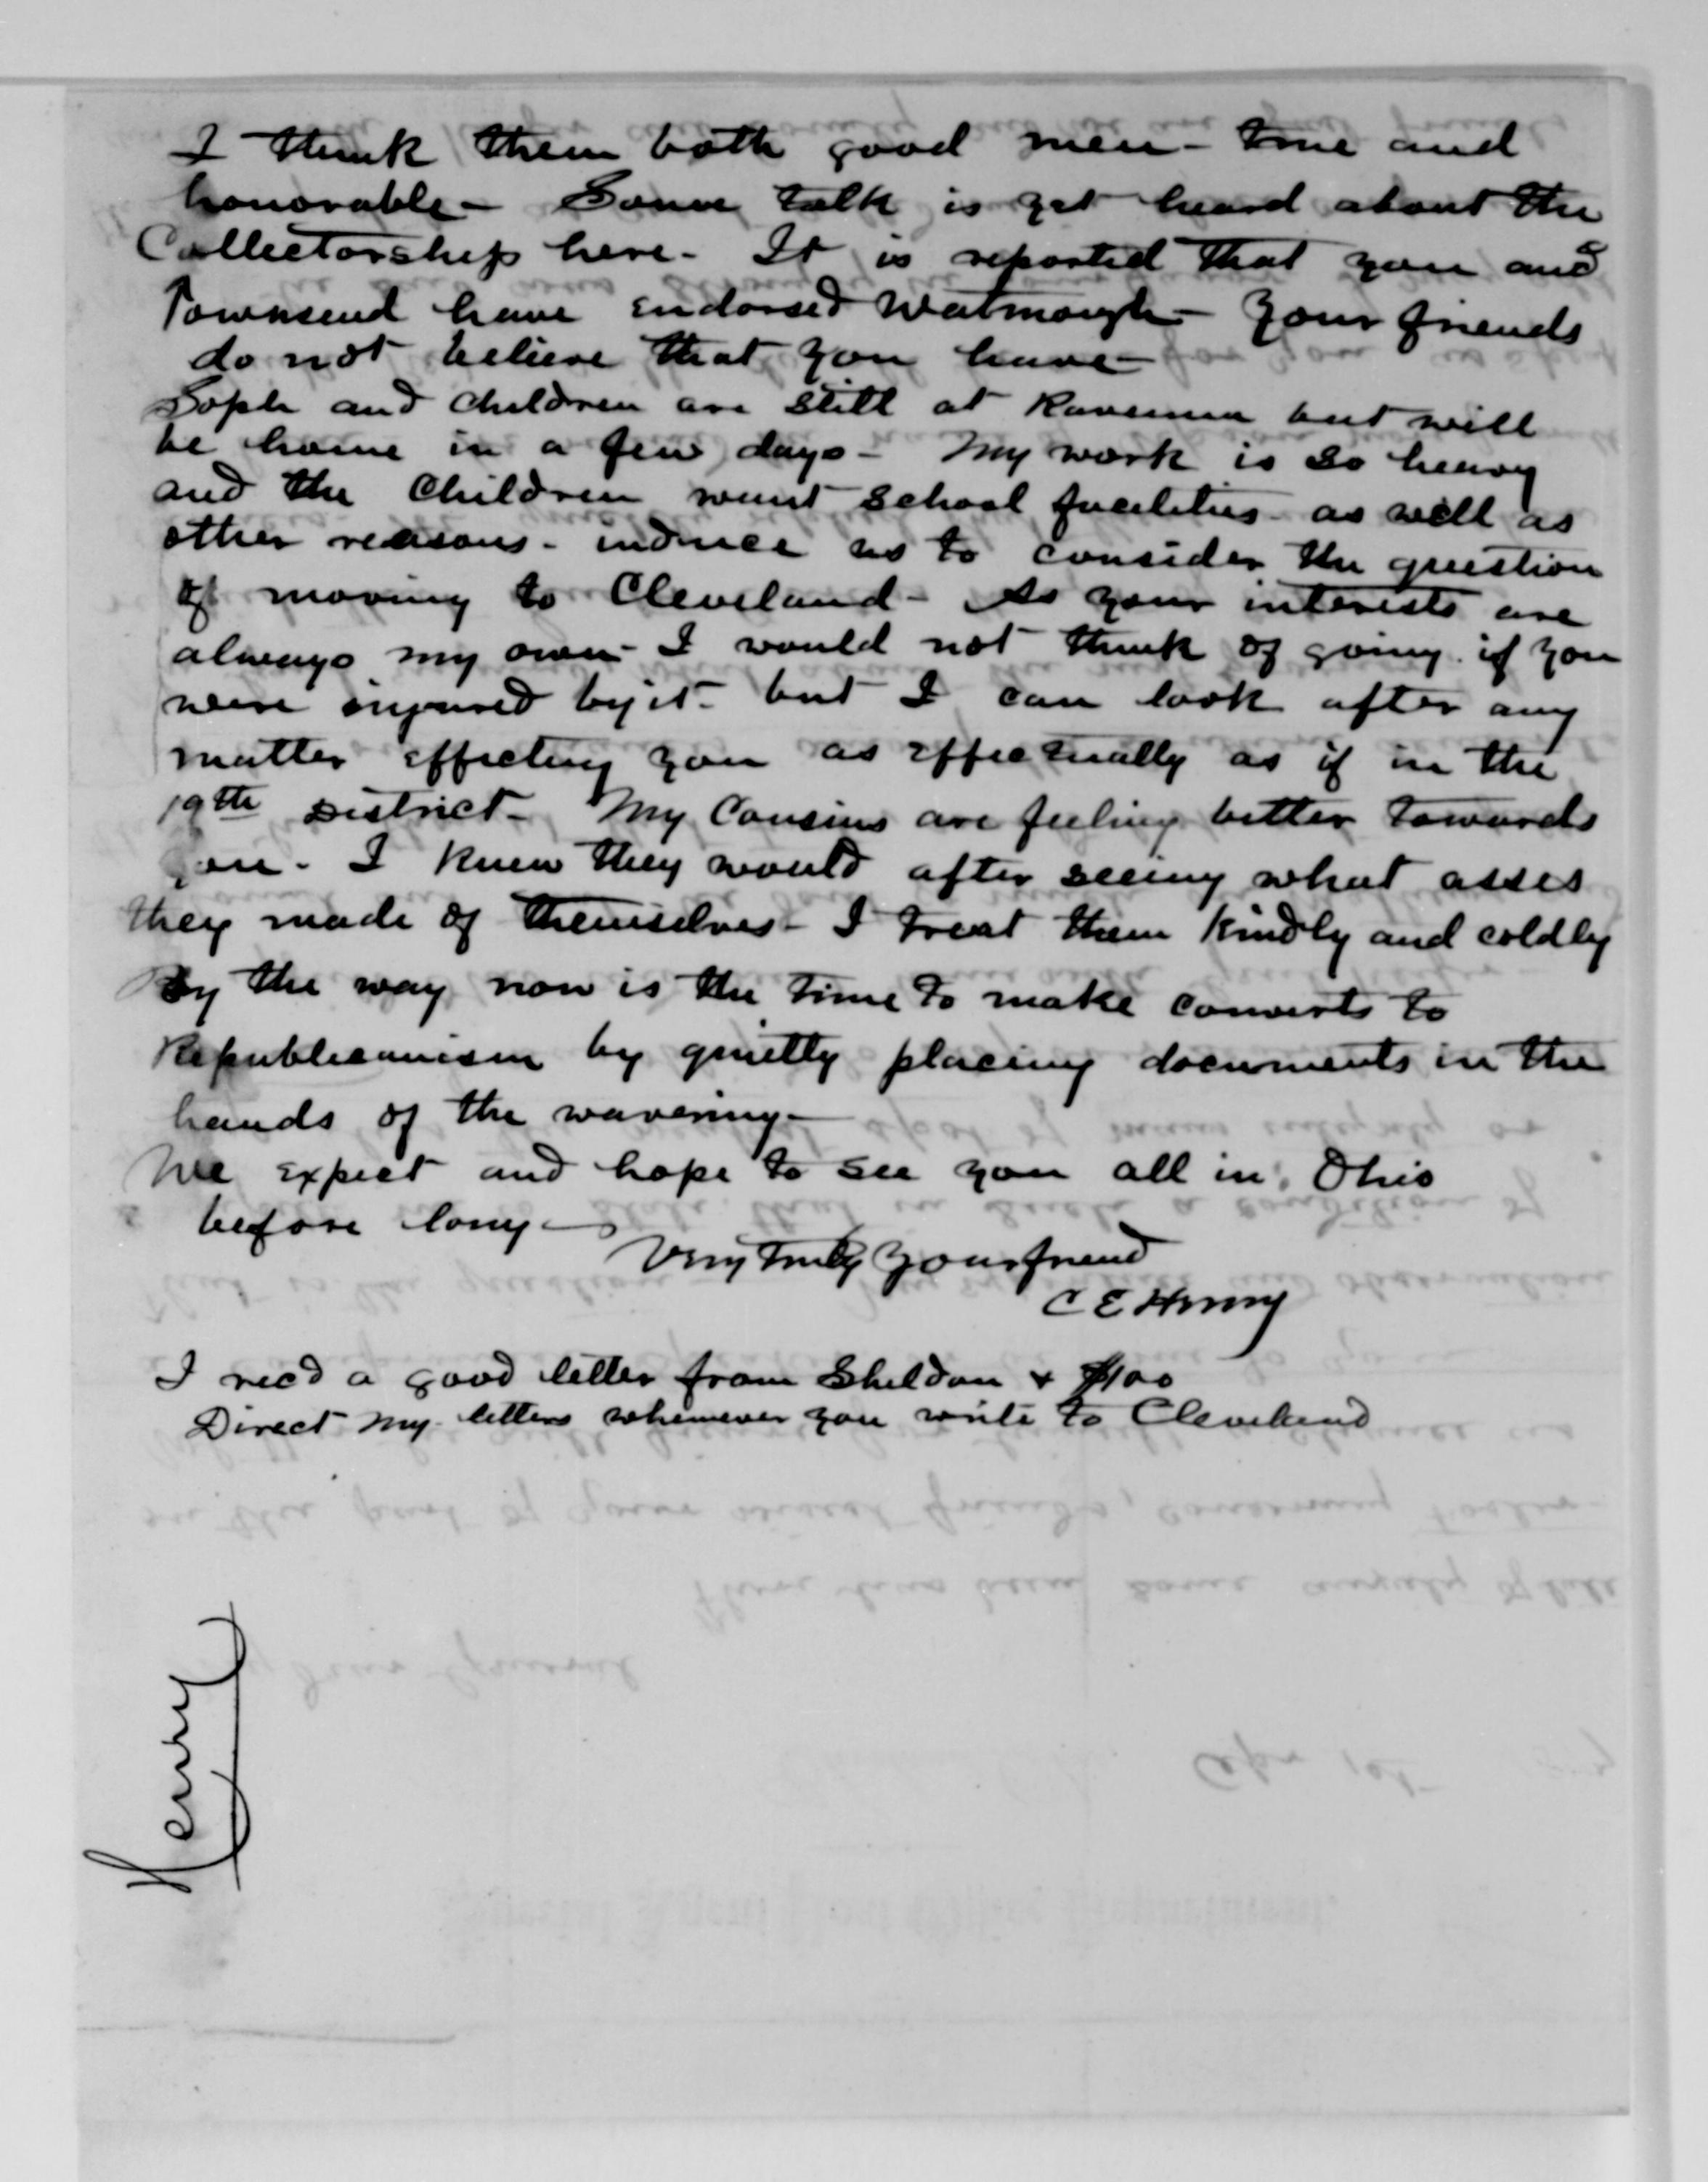 I think them both good men - true and
honorable - Some talk is yet heard about the
Collectorship here - It is reported that you and
Townsend have endorsed Watmough - Your friends
do not believe that you have -
Soph and children are still at Ravenna but will
be home in a few days - My work is so heavy
and the Children want school facilities - as well as
other reasons - induce us to consider the question
of moving to Cleveland - As your interests are
always my own - I would not think of going if you
were injured by it - but I can look after any
matter effecting you as effectually as if in the
19th District - My Cousins are feeling better towards
you - I knew they would after seeing what asses
they made of themselves - I treat them kindly and coldly
By the way now is the time to make converts to
Republicanism by quietly placing documents in the
hands of the wavering -
We expect and hope to see you all in Ohio
before long -
Very Truly Your friend
C E Henry
I recd a good letter from Sheldon & $100
Direct my letters whenever you write to Cleveland
Henry